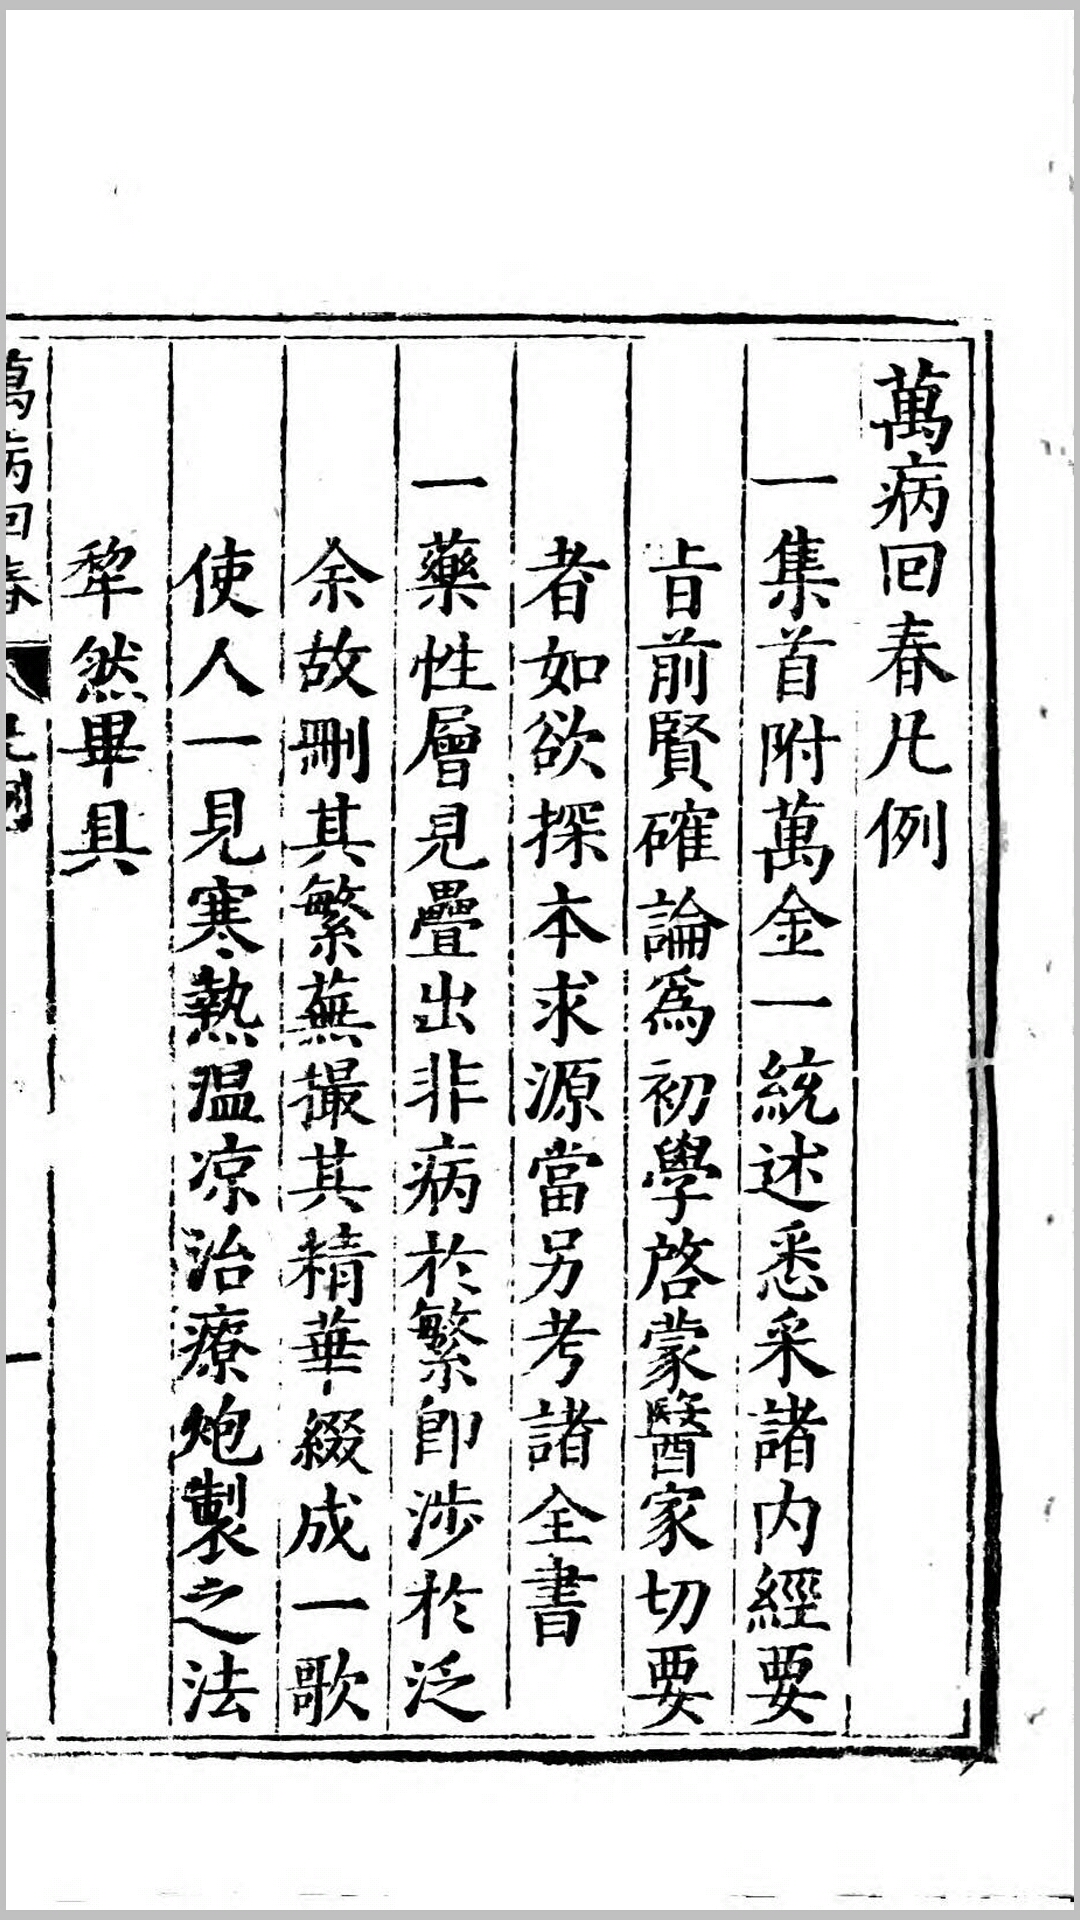 萬病回春凡例
一集首附萬金一統述悉采諸内經要
旨前賢確論爲初學啓蒙醫家切要
者如欲探本求源當另考諸全書
一藥性層見疊出非病於繁卽涉於泛
余故刪其繁蕪撮其精華綴成一歌
使人一見寒熱温凉治療炮製之法
犂然畢具
萬病回春 凡例 一